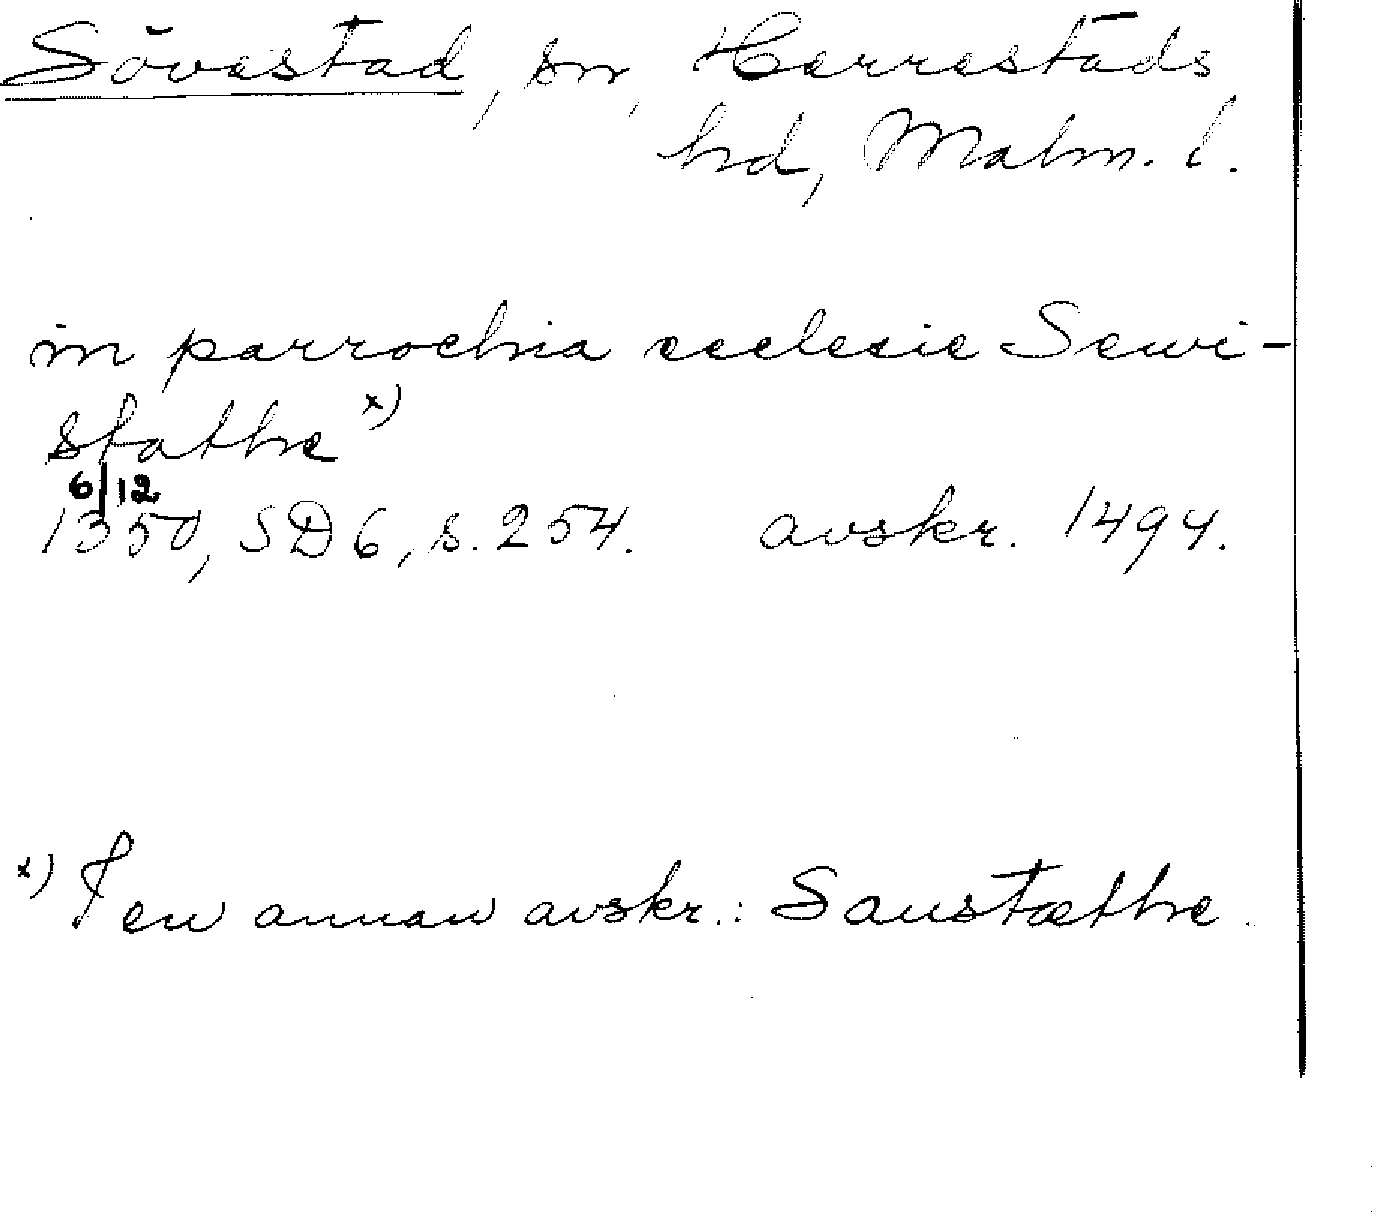 Sövestad, sn, Herrestads
hd, Malm. l.
in parrochia ecclesie Sewi-
stathe x)
6/12
1350, SD 6, s. 254. avskr. 1494.
x) I en annan avskr.: Saustæthe.